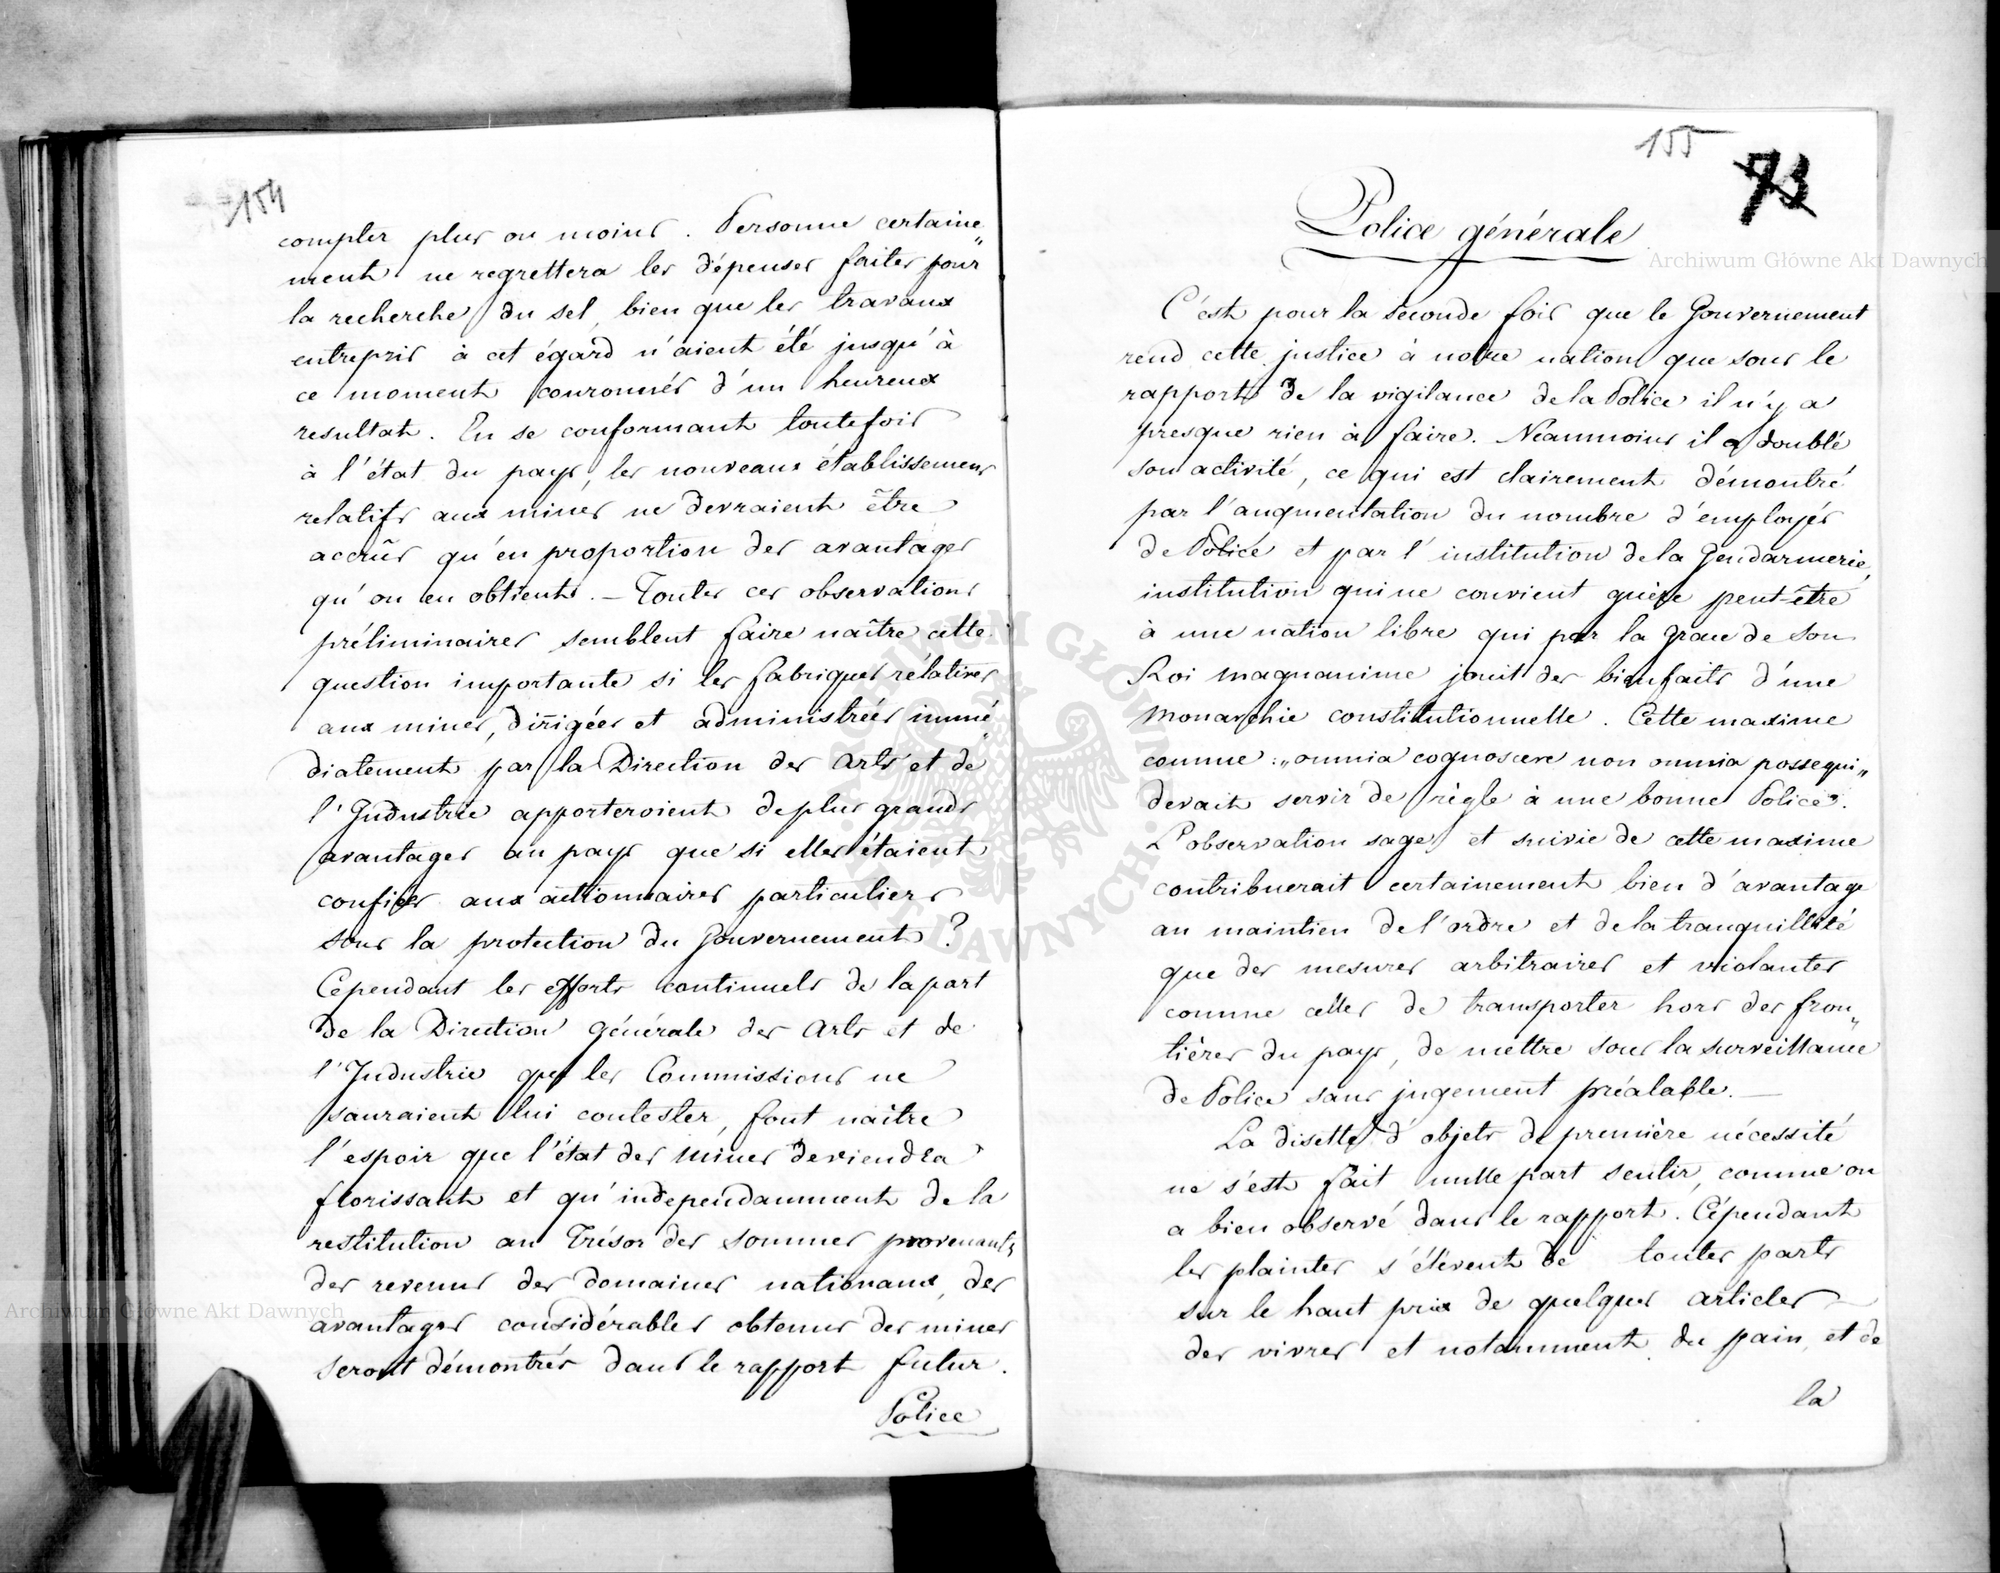 154
compter plus ou moins. Personne certaine„
ment ne regrettera les dépenses faites pour
la recherche du sel, bien que les travaux
entrepris à cet égard n'aient été jusqu'à
ce moment couronnés d'un heureux
resultat. En se conformant toutefois
à l'état du pays, les nouveaux établissemens
relatifs aux mines ne devraient être
accrûs qu'en proportion des avantages
qu'on en obtient. — Toutes ces observations
préliminaires semblent faire naître cette
question importante si les fabriques rélatives
aux mines, dirigées et administrées immé„
diatement par la Direction des Arts et de
l'Industrie apporteroient de plus grands
avantages au pays que si elles étaient
confiées aux actionnaires particuliers
sous la protection du Gouvernement?
Cependant les efforts continuels de la part
de la Direction générale des Arts et de
l'Industrie que les Commissions ne
sauraient lui contester, font naître
l'espoir que l'état des mines deviendra
florissant et qu'independamment de la
restitution au Trésor des sommes provenants
des revenus des domaines nationaux, des
avantages considérables obtenus des mines
seront démontrés dans le rapport futur.
Police
155
73
Police générale
C'est pour la seconde fois que le Gouvernement
rend cette justice à notre nation que sous le
rapport de la vigilance de la Police il n'y a
presque rien à faire. Neanmoins il a doublé
son activité, ce qui est clairement démontré
par l'augmentation du nombre d'employés
de Police et par l'institution de la Gendarmerie,
institution qui ne convient guère peut-être
à une nation libre qui par la grace de son
Roi magnanime jouit des bienfaits d'une
monarchie constitutionnelle. Cette maxime
comme: „omnia cognoscere non omnia possequi„
devait servir de règle à une bonne Police.
L'observation sage et suivie de cette maxime
contribuerait certainement bien d'avantage
au maintien de l'ordre et de la tranquillité
que des mesures arbitraires et violantes
comme celles de transporter hors des fron„
tières du pays, de mettre sous la surveillance
de Police sans jugement préalable. —
La disette d'objets de première nécessité
ne s'est fait nulle part sentir, comme on
a bien observé dans le rapport. Cépendant
les plaintes s'élèvent de toutes parts
sur le haut prix de quelques articles
des vivres et notamment du pain, et de
la
Archiwum Główne Akt Dawnych
Archiwum Główne Akt Dawnych
ARCHIWUM GŁÓWNE AKT DAWNYCH